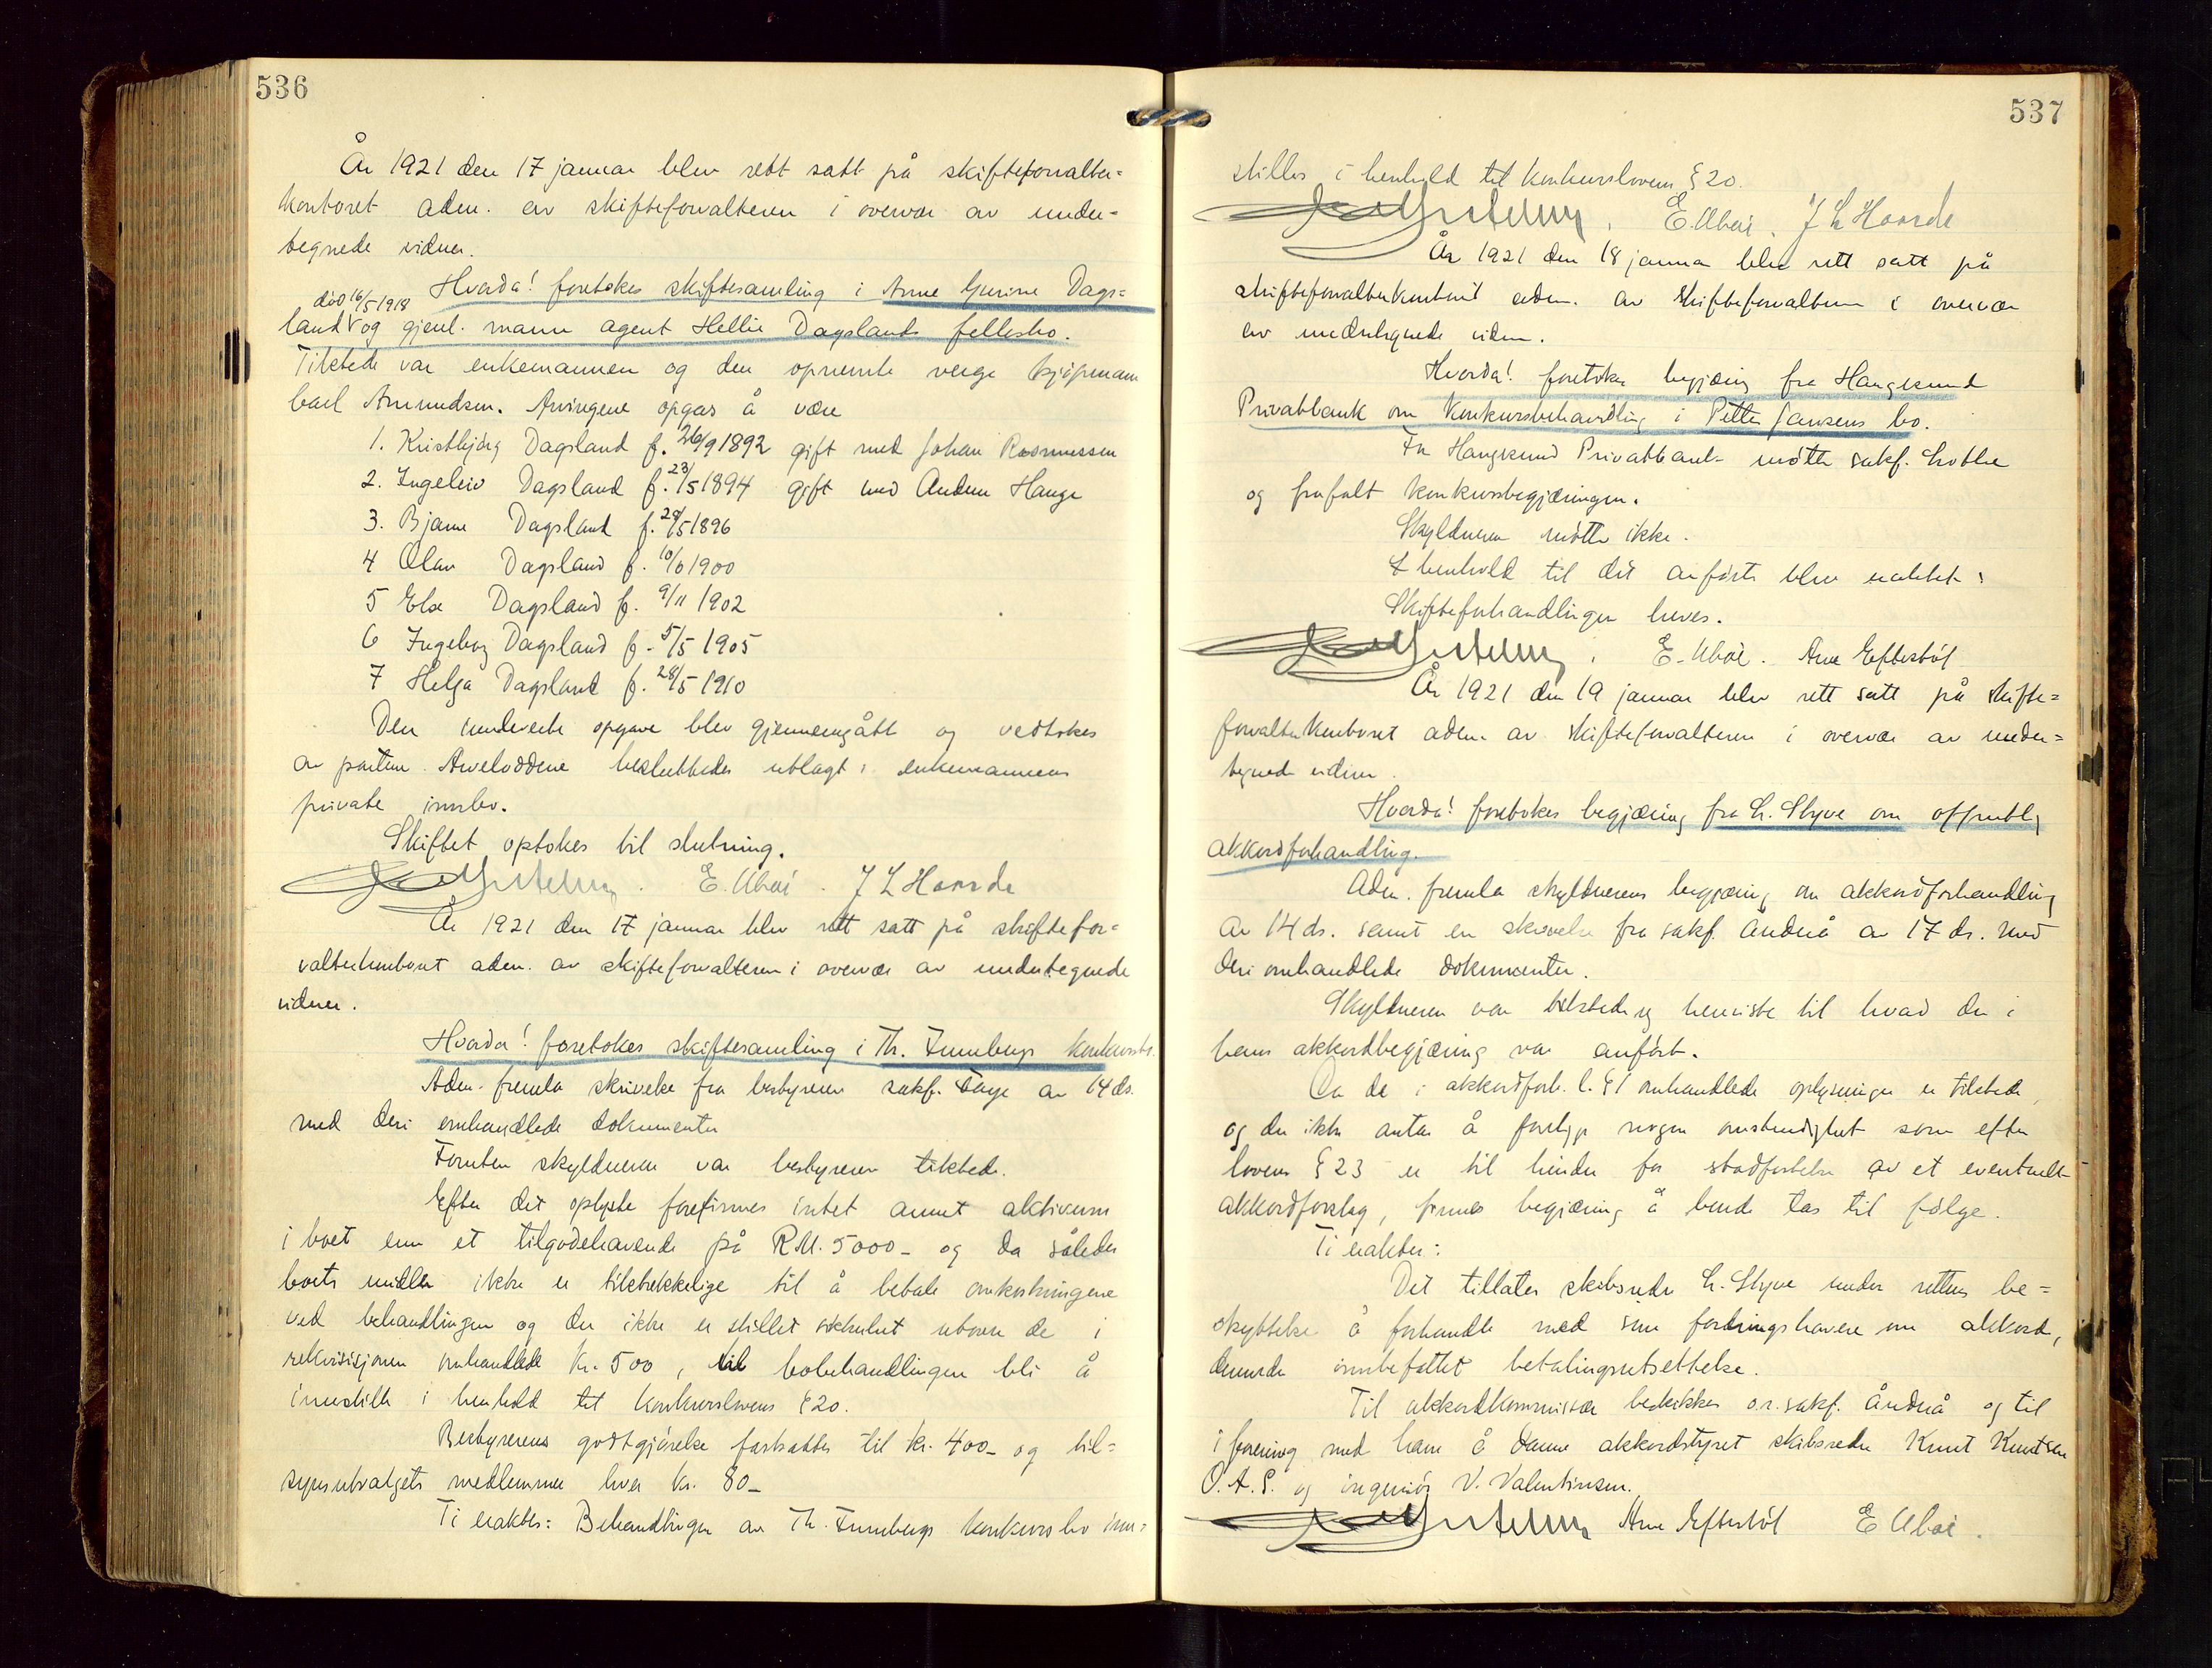 536
År 1921 den 17 januar blev rett satt på skifteforvalter=
kontoret adm. av skifteforvalteren i overvær av under=
tegnede vidner.
Hvorda! foretokes skiftesamling i Anne Gurine Dags=
død 16/5 1918
land og gjenl. mann agent Hellie Dagslands fellesbo.
Tilstede var enkemannen og den opnevnte verge kjøpmann
Carl Amundsen. Arvingene opgas å være
1. Kristbjørg Dagsland f. 26/9 1892 gift med Johan Rasmussen
2. Ingeleiv Dagsland f. 23/5 1894 gift med Anders Hauge
3. Bjarne Dagsland f. 29/5 1896
4 Olav Dagsland f. 10/6 1900
5 Else Dagsland f. 9/11 1902
6 Ingeborg Dagsland f. 5/5 1905
7 Helga Dagsland f. 28/5 1910
Den innleverte opgave blev gjennemgått og vedtokes
av partene. Arveloddene besluttedes utlagt i enkemannens
private innbo.
Skiftet optokes til slutning.
E. Ubøe. J L Haarde
År 1921 den 17 januar blev rett satt på skiftefor=
valterkontoret adm. av skifteforvalteren i overvær av undertegnede
vidner.
Hvorda! foretokes skiftesamling i Th. Funnbergs konkursbo.
Adm. fremla skrivelse fra bestyreren sakf. Tage av 14 ds.
med deri omhandlede dokumenter
Foruten skyldneren var bestyreren tilstede.
Efter det oplyste forefinnes intet annet aktivum
i boet enn et tilgodehavende på R.M. 5000- og da således
boets midler ikke er tilstrekkelige til å betale omkostningene
ved behandlingen og der ikke er stillet sikkerhet utover de i
rekvisisjonen omhandlede kr. 500, vil bobehandlingen bli å
innstille i henhold til konkurslovens § 20.
Bestyrerens godtgjørelse fastsattes til kr. 400- og til=
synsutvalgets medlemmer hver kr. 80-
Ti eraktes: Behandlingen av Th. Funnbergs konkursbo inn=
537
stilles i henhold til konkursloven § 20.
E. Ubøe. J L Haarde
År 1921 den 18 januar blev rett satt på
skifteforvalterkontoret adm. av skifteforvalteren i overvær
av undertegnede vidner.
Hvorda! foretokes begjæring fra Haugesund
Privatbank om konkursbehandling i Petter Jansens bo.
For Haugesund Privatbank møtte sakf.
og frafalt konkursbegjæringen.
Skyldneren møtte ikke.
I henhold til det anførte blev eraktet:
Skifteforhandlingen heves.
E. Ubøe. Arne Eftestøl
År 1921 den 19 januar blev rett satt på skifte=
forvalterkontoret adm. av skifteforvalteren i overvær av under=
tegnede vidner.
Hvorda! foretokes begjæring fra L. Styve om offentlig
akkordforhandling.
Adm. fremla skyldnerens begjæring om akkordforhandling
av 14 ds. samt en skrivelse fra sakf. Åndnå av 17 ds. med
deri omhandlede dokumenter.
Skyldneren var tilstede og henviste til hvad der i
hans akkordbegjæring var anført.
Da de i akkordforh. l. § 1 omhandlede oplysninger er tilstede,
og der ikke antas å foreligge nogen omstendighet som efter
lovens § 23 er til hinder for stadfestelse av et eventuelt
akkordforslag, finnes begjæring å burde tas til følge.
Ti eraktes:
Det tillates skibsreder L. Styve under rettens be=
skyttelse å forhandle med sine fordringshavere om akkord,
derunder innbefattet betalingsutsettelse.
Til akkordkommissær beskikkes o.r.sakf. Åndnå og til
i forening med ham å danne akkordstyret skibsreder Knut Knutsen
O.A.S. og ingeniør V. Valentinsen.
Arne Eftestøl E Ubøe.